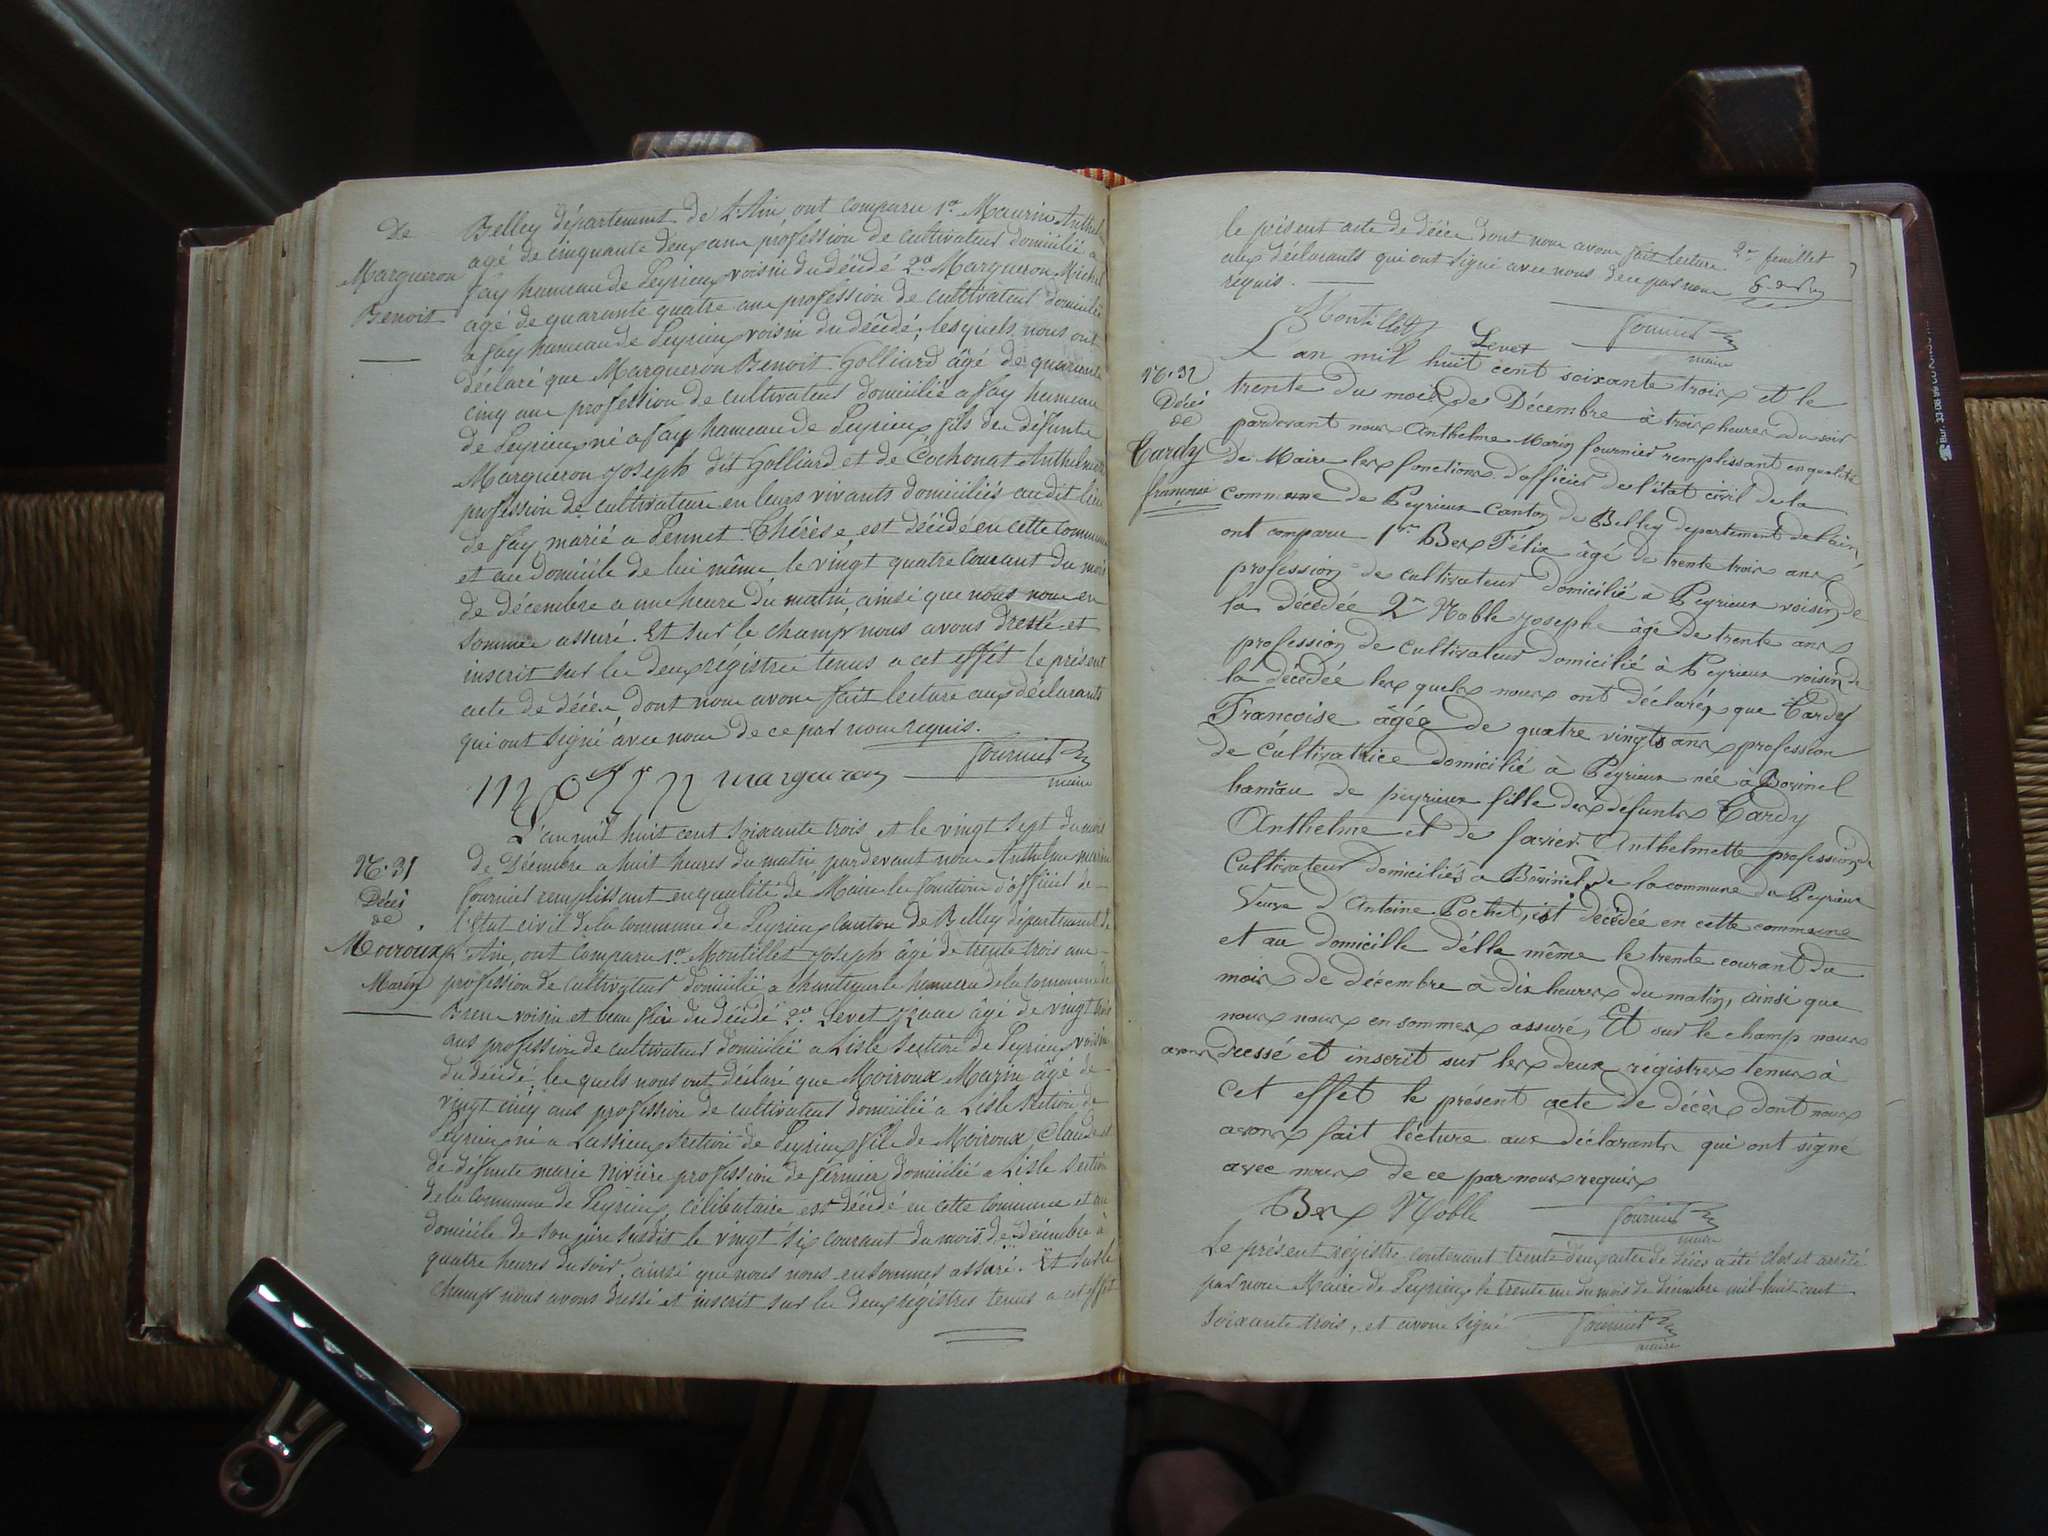 De
Margueron
Benoit
Belley département de L'Ain, ont comparu 1er Maurin Anthel
agé de cinquante deux ans profession de cultivateur domicilié a
fay hameau de Peyrieu voisin du décédé 2er Margueron Michel
agé de quarante quatre ans profession de cultivateur domicilié
a fay hameau de Peyrieu voisin du décédé, lesquels nous ont
déclaré que Margueron Benoit Golliard âgé de quarante
cinq ans profession de cultivateur domicilié a fay hameau
de Peyrieu né a fay hameau de Peyrieu fils des défunts
Margueron Joseph dit Golliard et de Cochonat Anthelmette
profession de cultivateurs en leurs vivants domiciliés audit lieu
de fay marié a Pennet Thérèse, est décédé en cette commune
et au domicile de lui même le vingt quatre courant du mois
de décembre a une heure du matin, ainsi que nous nous en
sommes assuré. Et sur le champ nous avons dressé et
inscrit sur les deux régistres tenus a cet effet le présent
acte de décès dont nous avons fait lecture aux déclarants
qui ont signé avec nous de ce par nous requis.
margueron
fournier
maire
N. 31
Décès
de
Moiroux
Marin
L'an mil huit cent soixante trois et le vingt sept du mois
de Décembre a huit heures du matin pardevant nous Anthelme marin
fournier remplissant en qualité de Maire les fonctions d'officier de
l'état civil de la commune de Peyrieu canton de Belley département de
l'Ain, ont comparu 1er Montillet Joseph âgé de trente trois ans
profession de cultivateur domicilié a hameau de la commune de
Brens voisin et beau frère du décédé 2er Levet âgé de vingt trois
ans profession de cultivateur domicilié a Lisle section de Peyrieu voisin
du décédé, lesquels nous ont déclaré que Moiroux Marin âgé de
vingt cinq ans profession de cultivateur domicilié a Lisle section de
Peyrieu né a Lassieu section de Peyrieu fils de Moiroux Claude et
de défunte marie Rivière profession de fermier domicilié a Lisle section
de la commune de Peyrieu, célibataire est décédé en cette commune et au
domicile de son père susdit le vingt six courant du mois de décembre à
quatre heures du soir, ainsi que nous nous en sommes assuré. Et sur le
champ nous avons dressé et inscrit sur les deux régistres tenus a cet effet
le présent acte de décès dont nous avons fait lecture
aux déclarants qui ont signé avec nous de ce par nous
requis.
2e feuillet
Montillet
Levet
fournier
maire
N. 32
Décès
de
Tardy
francoise
L'an mil huit cent soixante trois et le
trente du mois de Décembre à trois heures du soir
pardevant nous Anthelme Marin fournier remplissant en qualité
de Maire les fonctions d'officier de l'état civil de la
commune de Peyrieux Canton de Belley département de l'ain,
ont comparu 1er Bex Félix âgé de trente trois ans
profession de cultivateur domicilié à Peyrieux voisin de
la décédée 2e Noble Josephe âgé de trente ans
profession de cultivateur domicilié à Peyrieux voisin de
la décédée les quels nous ont déclaré, que Tardy
Francoise âgée de quatre vingts ans profession
de cultivatrice domicilié à Peyrieux née à Bovinel
hamau de peyrieux fille des défunts Tardy
Anthelme et de favier Anthelmette profession de
Cultivateur domiciliés à Bovinel de la commune de Peyrieux
Veuve d'Antoine Pochet, est décédée en cette commune
et au domicille d'élle même le trente courant du
mois de décembre à dix heures du matin, ainsi que
nous nous en sommes assuré, Et sur le champ nous
avons dressé et inscrit sur les deux régistres tenus à
cet effet le présent acte de décès dont nous
avons fait lécture aux déclarants qui ont signé
avec nous de ce par nous requis
Bex Noble
fournier
maire
Le présent régistre contenant trente deux actes de décès a été clos et arrêté
par nous Maire de Peyrieu, le trente un du mois de décembre mil huit cent
soixante trois, et avons signé
fournier
maire